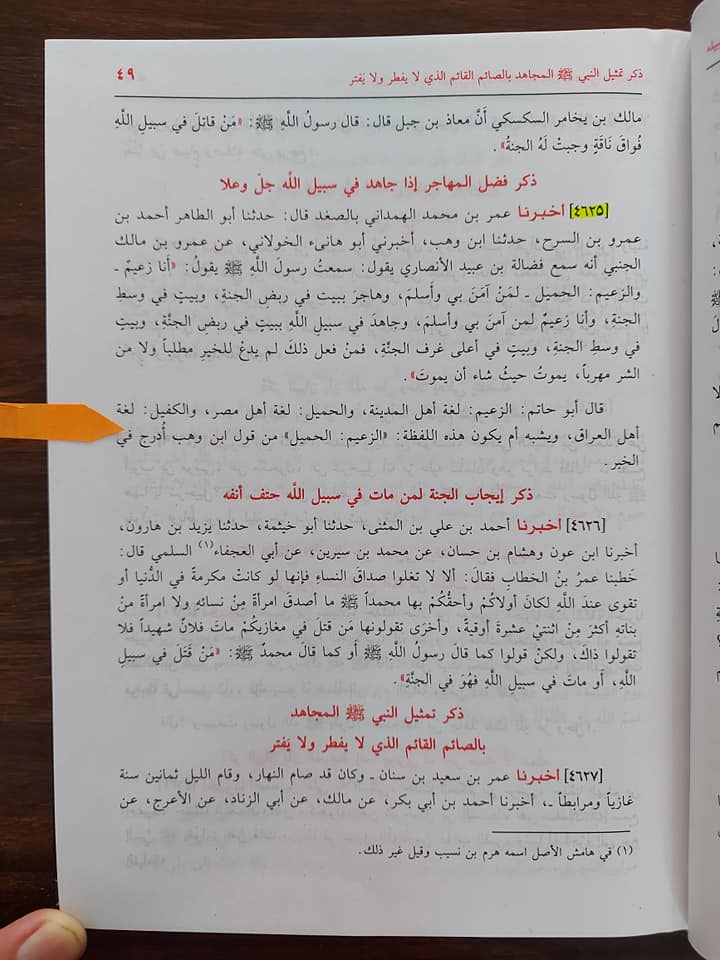 ذكر تمثيل النبي ﷺ المجاهد بالصائم القائم الذي لا يفطر ولا يَفتر ٤٩
مالك بن يخامر السكسكي أَنَّ معاذ بن جبل قال: قال رسولُ اللَّهِ ﷺ: «مَنْ قاتلَ في سبيلِ اللَّهِ
فُواقَ نَاقَةٍ وجبتْ لَهُ الجنةُ».
ذكر فضل المهاجر إذا جاهد في سبيل اللَّه جلّ وعلا
[٤٦٢٥] أخبرنا عمر بن محمد الهمداني بالصغد قال: حدثنا أبو الطاهر أحمد بن
عمرو بن السرح، حدثنا ابن وهب، أخبرني أبو هانىء الخولاني، عن عمرو بن مالك
الجنبي أنه سمع فضالة بن عبيد الأنصاري يقول: سمعتُ رسولَ اللَّهِ ﷺ يقولُ: «أنا زعيمٌ ـ
والزعيم: الحميل ـ لمنْ آمَنَ بي وأَسلمَ، وهاجرَ ببيت في ربض الجنةِ، وبيتٍ في وسطِ
الجنةِ، وأنا زعيمٌ لمن آمنَ بي وأسلمَ، وجاهدَ في سبيلِ اللَّهِ ببيتٍ في ربض الجنَّةِ، وبيتٍ
في وسطِ الجنةِ، وبيتٍ في أعلى غرف الجنَّةِ، فمنْ فعل ذلكَ لم يدعْ للخيرِ مطلباً ولا من
الشر مهرباً، يموتُ حيثُ شاء أن يموتَ».
قال أبو حاتم: الزعيم: لغة أهل المدينة، والحميل: لغة أهل مصر، والكفيل: لغة
أهل العراق، ويشبه أم يكون هذه اللفظة: «الزعيم: الحميل» من قول ابن وهب أُدرج في
الخبر.
ذكر إيجاب الجنة لمن مات في سبيل اللَّه حتف أنفه
[٤٦٢٦] أخبرنا أحمد بن علي بن المثنى، حدثنا أبو خيثمة، حدثنا يزيد بن هارون،
أخبرنا ابن عون وهشام بن حسان، عن محمد بن سيرين، عن أبي العجفاء(١) السلمي قال:
خَطبنا عمرُ بنُ الخطابِ فقالَ: ألا لا تغلوا صداقَ النساءِ فإنها لو كانتْ مكرمةً في الدُّنيا أو
تقوى عندَ اللَّهِ لكانَ أولاكُمْ وأحقُّكُمْ بها محمداً ﷺ ما أصدقَ امرأةً مِنْ نسائهِ ولا امرأةً منْ
بناتهِ أكثرَ مِنْ اثنتيْ عشرةَ أوقيةً، وأخرَى تقولونها مَن قتلَ في مغازيكُمْ ماتَ فلانٌ شهيداً فلا
تقولوا ذاكَ، ولكنْ قولوا كما قالَ رسولُ اللَّهِ ﷺ أو كما قالَ محمدٌ ﷺ: «مَنْ قَتَلَ في سبيلِ
اللَّهِ، أو ماتَ في سبيلِ اللَّهِ فهُوَ في الجنَّةِ».
ذكر تمثيل النبي ﷺ المجاهد
بالصائم القائم الذي لا يفطر ولا يَفتر
[٤٦٢٧] أخبرنا عمر بن سعيد بن سنان ـ وكان قد صام النهار، وقام الليل ثمانين سنة
غازياً ومرابطاً ـ، أخبرنا أحمد بن أبي بكر، عن مالك، عن أبي الزناد، عن الأعرج، عن
(١) في هامش الأصل اسمه هرم بن نسيب وقيل غير ذلك.